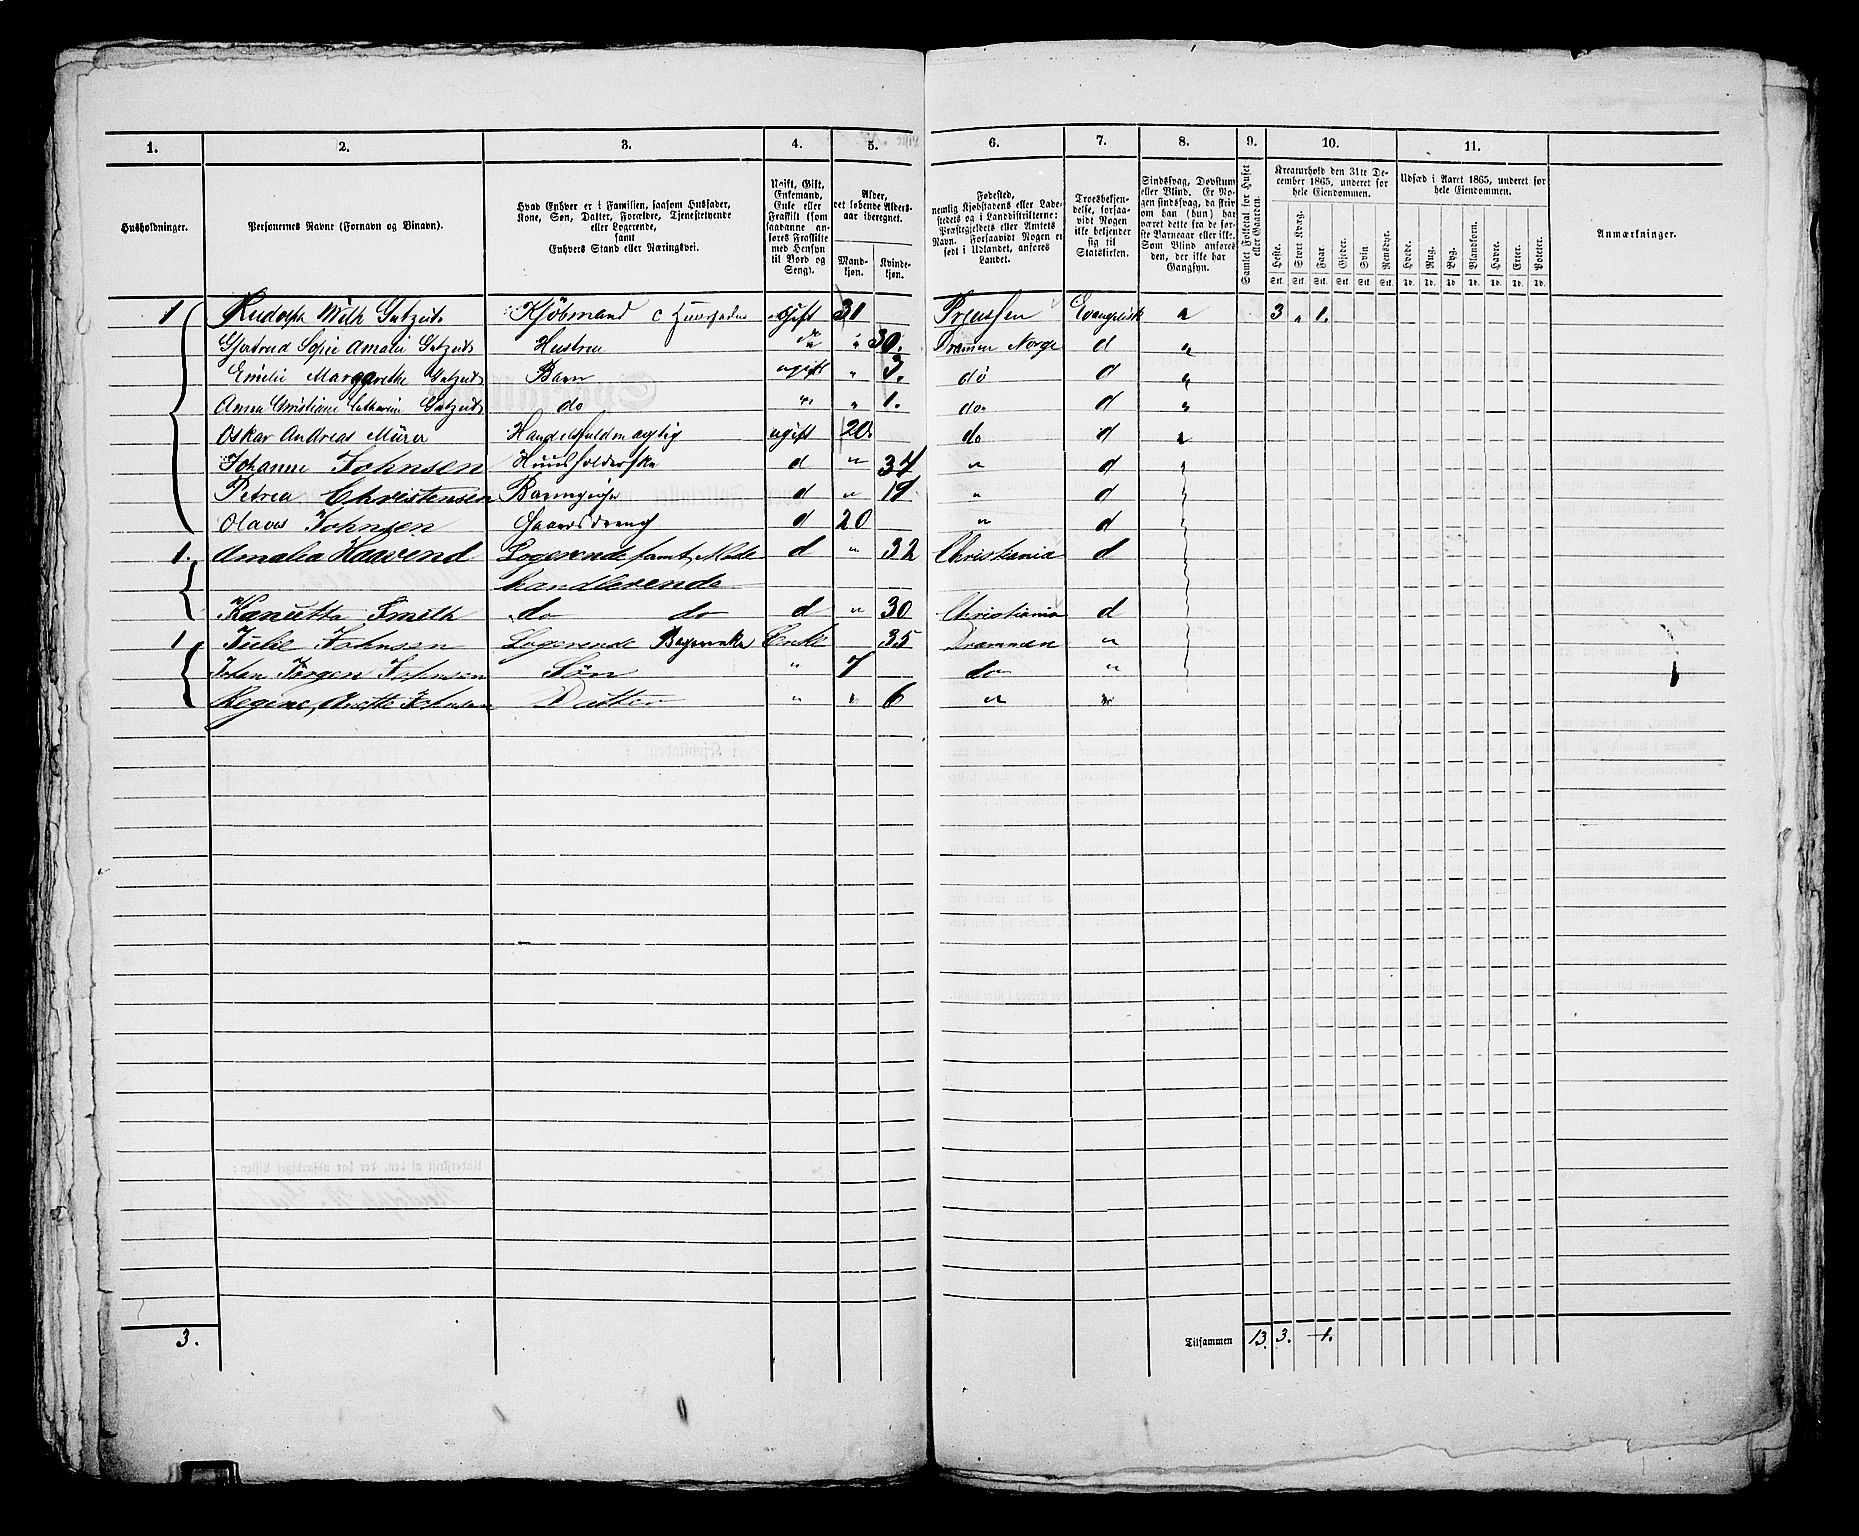 1. 2. 3. 4. 5. 6. 7. 8. 9. 10. 11.
Husholdninger.
Personernes Navne (Fornavn og Tilnavn).
Hvad Enhver er i Familien, saasom Husfader, Kone, Søn, Datter, Forældre, Tjenestetyende eller Logerende, samt Enhvers Stand eller Næringsvei.
Ugift, Gift, Enkemand, Enke eller Fraskilt (som saadanne anføres Fraskilte med Hensyn til Bord og Seng).
Alder, det løbende Aldersaar iberegnet.
Mandkjøn. Kvindekjøn.
Fødested, nemlig Kjøbstadens eller Ladestedets og i Landdistrikterne: Præstegjeldets eller Amtets Navn. Forsaavidt Nogen er født i Udlandet, anføres Landet.
Troesbekjendelse, forsaavidt Nogen ikke bekjender sig til Statskirken.
Sindssvag, Døvstum eller Blind. Er Nogen sindssvag, da skriv om han (hun) har været dette fra de første Barneaar eller ikke. Som Blind anføres den, der ikke har Gangsyn.
Samlet Folketal for Huset eller Gaarden.
Kreaturhold den 31te December 1865, underet for hele Eiendommen.
Heste. Stort Kvæg. Faar. Gjeder. Svin. Rensdyr.
Udsæd i Aaret 1865, underet for hele Eiendommen.
Hvede. Rug. Byg. Blandkorn. Havre. Erter. Poteter.
Anmærkninger.
Stk. Stk. Stk. Stk. Stk. Stk. Td. Td. Td. Td. Td. Td. Td.
1 Rudolph Wilh Gutzeit Kjöbmand Gift 31 Preussen Evangelisk " 3 " 1.
Gjertrud Sofie Amalie Gutzeit Hustru do " 30. Drammen Norge d "
Emilie Margarethe Gutzeit Barn ugift " 3. do d "
Anna Christiane Cathrine Gutzeit do " " 1. do. d "
Oskar Andreas Mürer Handelsfuldmægtig ugift 20. do d "
Johanne Johnsen Huusholderske d " 37 " d "
Petrea Christensen Barnepige d " 19 " d "
Olaves Johnsen Gaardsdreng d 20 " d "
1. Amalia Haavend Logerende samt Mode d " 32 Christiania d
handlerende
Kanutta Smith do do d " 30 Christiania d
1 Julie Johnsen Logerende Enke 35 Drammen "
Johan Jörgen Johnsen Sön " 7 do "
Regine Johnsen Datter " " 6 " "
3. Tilsammen 13 3. 1.